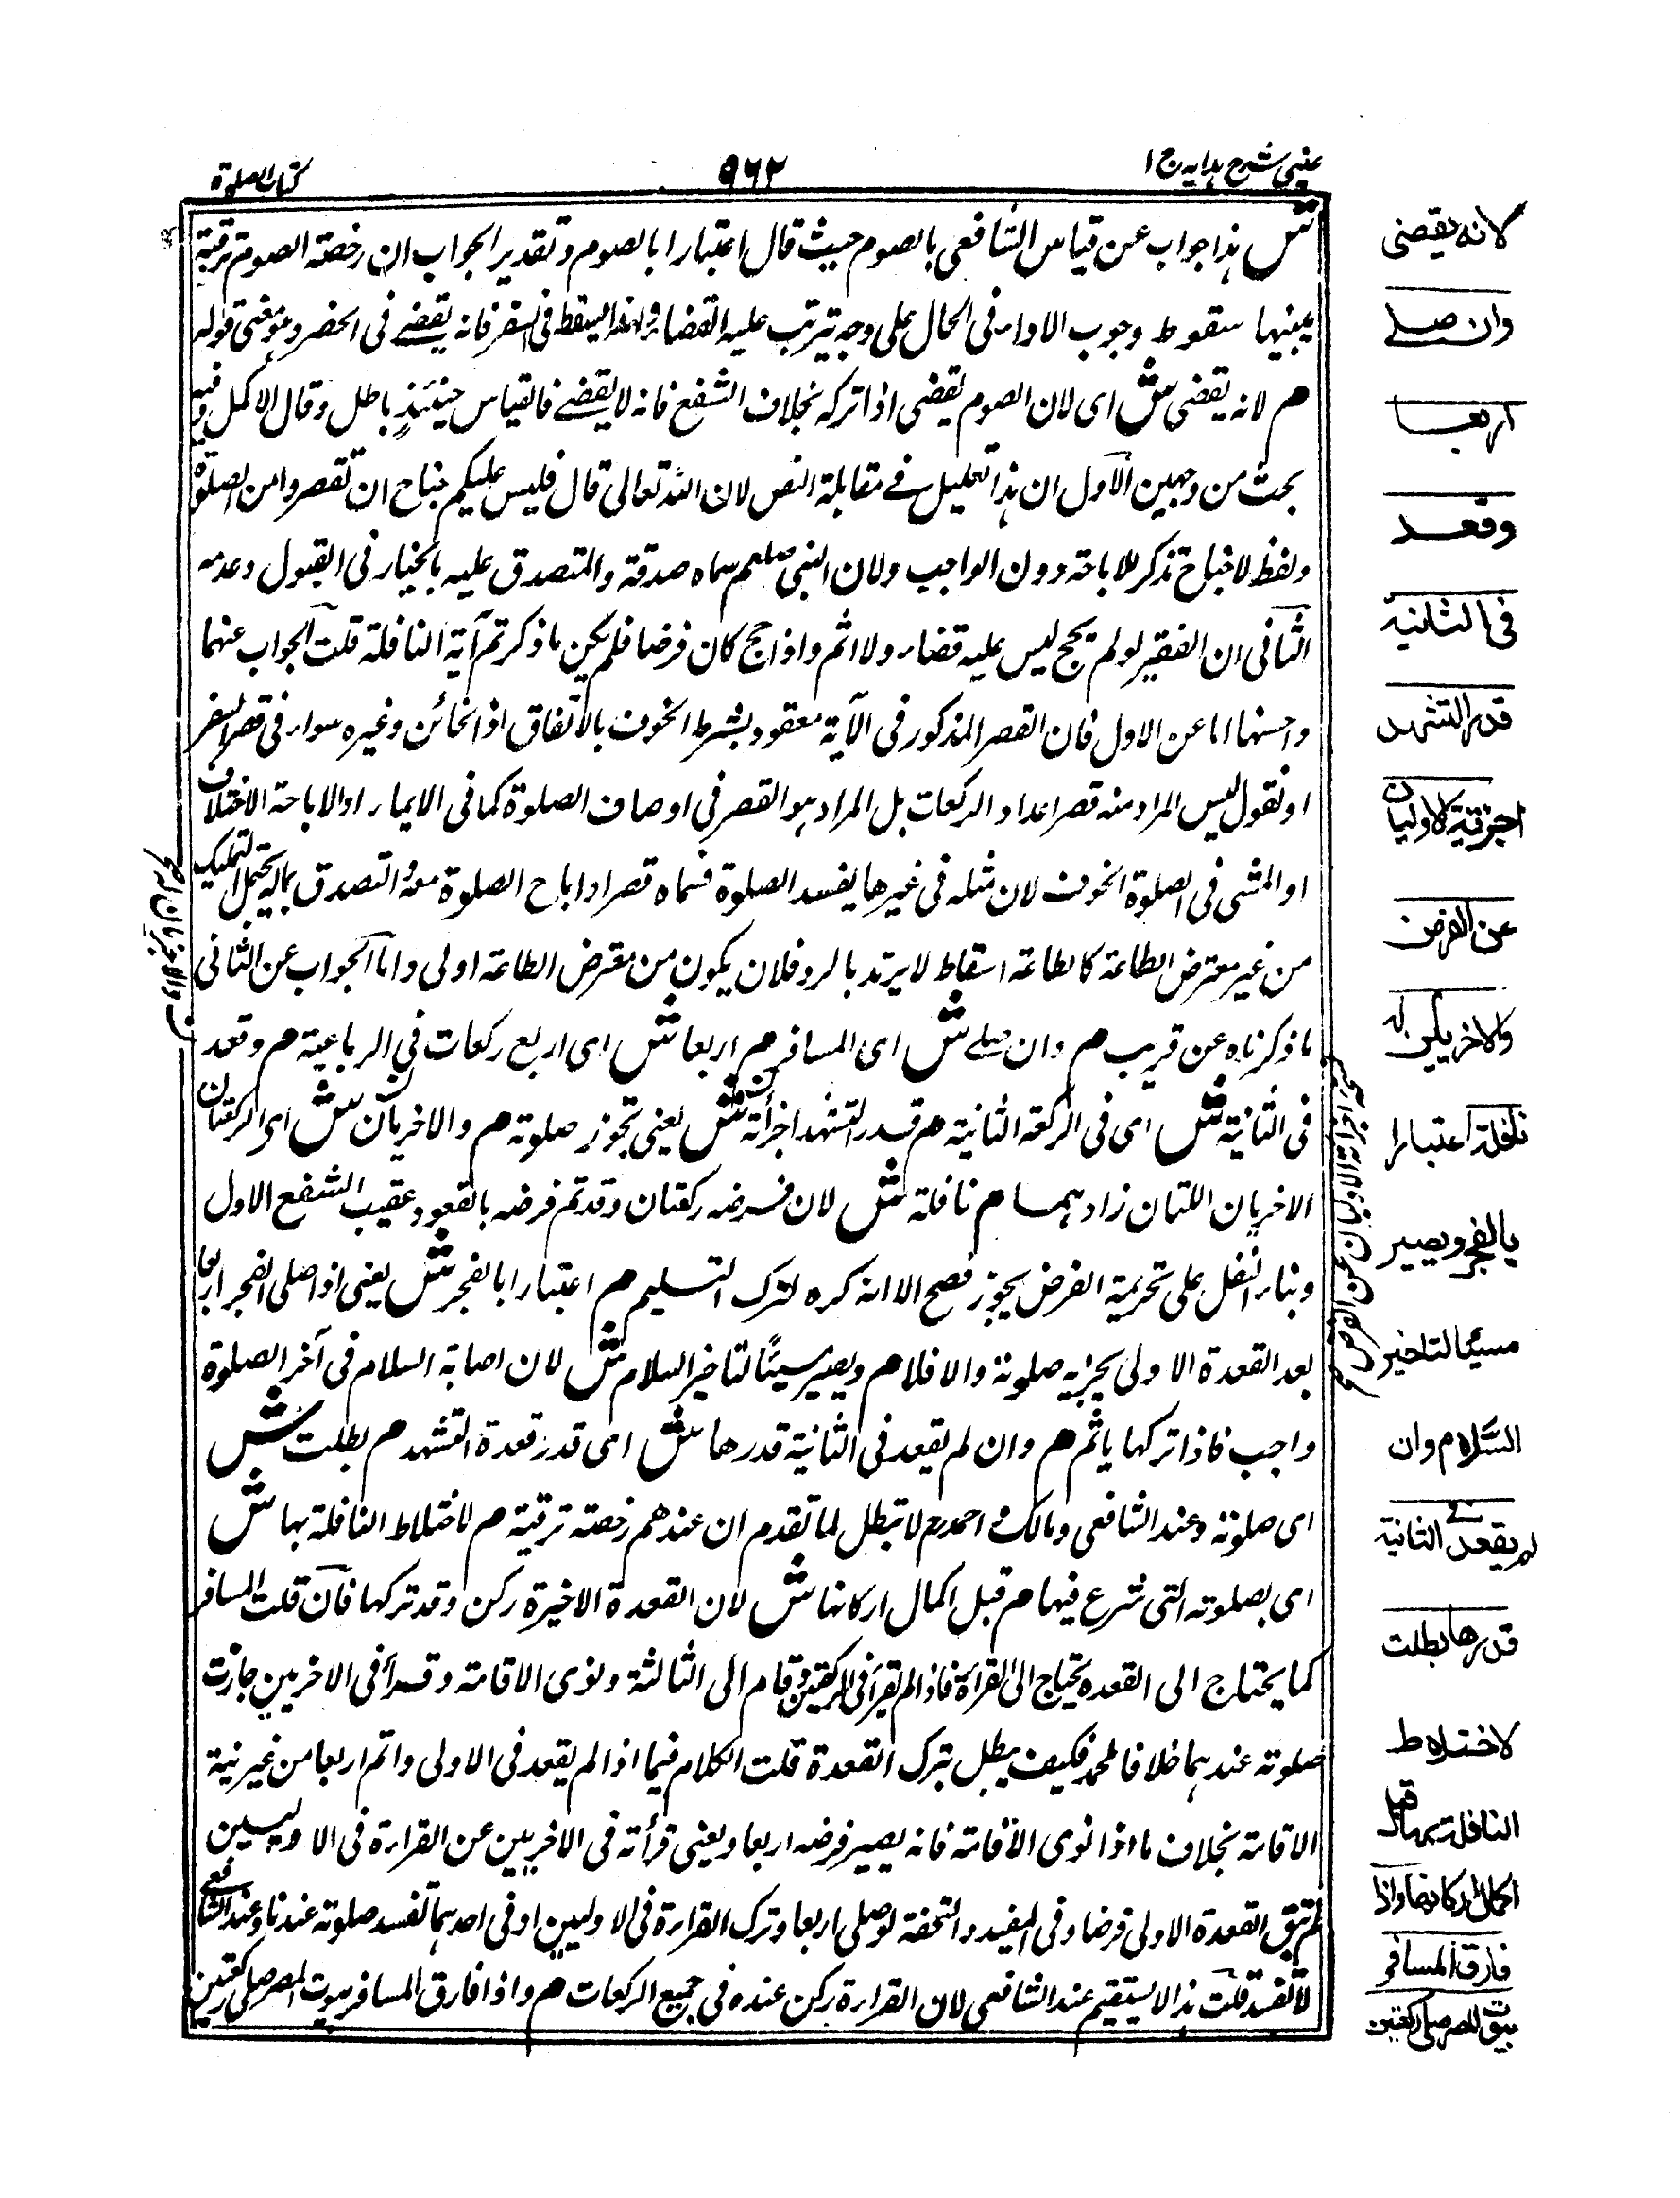 عینی شرح ہدایہ ج ۱
۹۶۲
کتاب الصلوة
ش ہذا جواب عن قیاس الشافعی بالصوم حیث قال اعتبارا بالصوم و تقدیر الجواب ان رخصة الصوم ترقیة
سقوط وجوب الاداء فی الحال علی وجه یترتب علیه القضاء فی السفر فانه یقضے فی الحضر و ہو معنی قوله
م لانه یقضی ش ای لان الصوم یقضی اذا ترکه بخلاف الشفع فانه لا یقضے فالقیاس حینئذٍ باطل و قال الاکمل و فیه
بحث من وجہین الاول ان ہذا تعلیل فے مقابلة النص لان اللہ تعالی قال فلیس علیکم جناح ان تقصروا من الصلوة
ولفظ لا جناح تذکر للاباحة دون الواجب ولان النبی صلعم سماه صدقة والمتصدق علیه بالخیار فی القبول وعدمه
الثانی ان الفقیر لو لم یحج لیس علیه قضاء ولا اثم واذا حج کان فرضا فلم یکن ما ذکرتم آیة النافلة قلت الجواب عنہما
اما عن الاول فان القصر المذکور فی الآیة معقود بشرط الخوف بالاتفاق اذ الخائف وغیره سواء فی قصر السفر
او نقول لیس المراد منه قصر اعداد الرکعات بل المراد ہو القصر فی اوصاف الصلوة کما فی الایماء او الاباحة الاختلاف
او المشی فی الصلوة الخوف لان مثله فی غیرها یفسد الصلوة فسماه قصرا و اباح الصلوة معه التصدق بما لا یحتمل التملیک
من غیر مفترض الطاعة کالطاعة اسقاط لا یرتد بالرد فلان یکون من مفترض الطاعة اولی واما الجواب عن الثانی
ما ذکرناه عن قریب م وان صلے ش ای المسافر م اربعا ش ای اربع رکعات فی الرباعیة م وقعد
فی الثانیة ش ای فی الرکعة الثانیة م قدر التشہد اجزأته ش یعنی تجوز صلوته م والاخریان ش ای الرکعتان
الاخریان اللتان زادہما م نافلة ش لان فرضه رکعتان وقد تم فرضه بالقعود عقیب الشفع الاول
وبناء النفل علی تحریمة الفرض یجوز فصح الا انه کره لترک التسلیم م اعتبارا بالفجر ش یعنی اذا صلی الفجر اربعا
بعد القعدة الاولی یجزیه صلوته والا فلا م ویصیر مسیئا لتاخیر السلام ش لان اصابة السلام فی آخر الصلوة
واجب فاذا ترکها یاثم م وان لم یقعد فی الثانیة قدرها ش ای قدر قعدة التشهد م بطلت ش
ای صلوته وعند الشافعی ومالک و احمد رح لا تبطل لما تقدم ان عندهم رخصة ترقیة م لاختلاط النافلة بها ش
ای بصلوته التی شرع فیها م قبل اکمال ارکانها ش لان القعدة الاخیرة رکن وقد ترکها فان قلت المسافر
کما یحتاج الی القعدة یحتاج الی القرأة فاذا لم یقرأ فی الرکعتین وقام الی الثالثة ونوی الاقامة وقرأ فی الاخریین جازت
صلوته عندہما خلافا لمحمد فکیف یبطل بترک القعدة قلت الکلام فیما اذا لم یقعد فی الاولی واتم اربعا من غیر نیة
الاقامة بخلاف ما اذا نوی الاقامة فانه یصیر فرضه اربعا ویغنی قرأته فی الاخریین عن القراءة فی الاولیین
لم تبق القعدة الاولی فرضا وفی المفید والتحفة لو صلی اربعا وترک القراءة فی الاولیین او فی احدہما تفسد صلوته عندنا وعند الشافعی
لا تفسد قلت ہذا لا یستقیم عند الشافعی لان القراءة رکن عنده فی جمیع الرکعات م واذا فارق المسافر بیوت المصر صلی رکعتین
لانه یقضی
وان صلے
اربعا
وقعد
فی الثانیة
قدر التشهد
اجزته الاولیان
عن الفرض
والاخریان له
نافلة اعتبارا
بالفجر ویصیر
مسیئا لتاخیر
السَّلام وان
لم یقعد فی الثانیة
قدرها بطلت
لاختلاط
النافلة بها قبل
اکمال ارکانها واذا
فارق المسافر
بیوت المصر صلی رکعتین